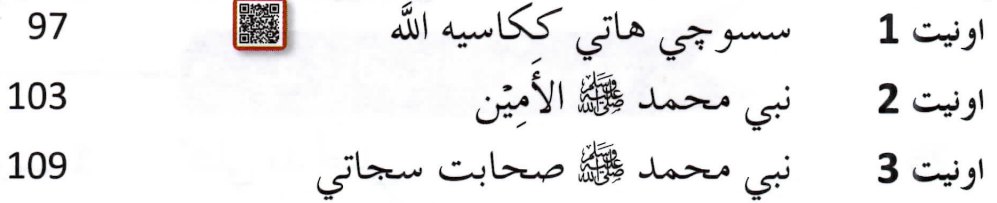 اونيت 1 سسوچي هاتي ككاسيه اللَّه 97
اونيت 2 نبي محمد ﷺ الأَمِيْن 103
اونيت 3 نبي محمد ﷺ صحابت سجاتي 109